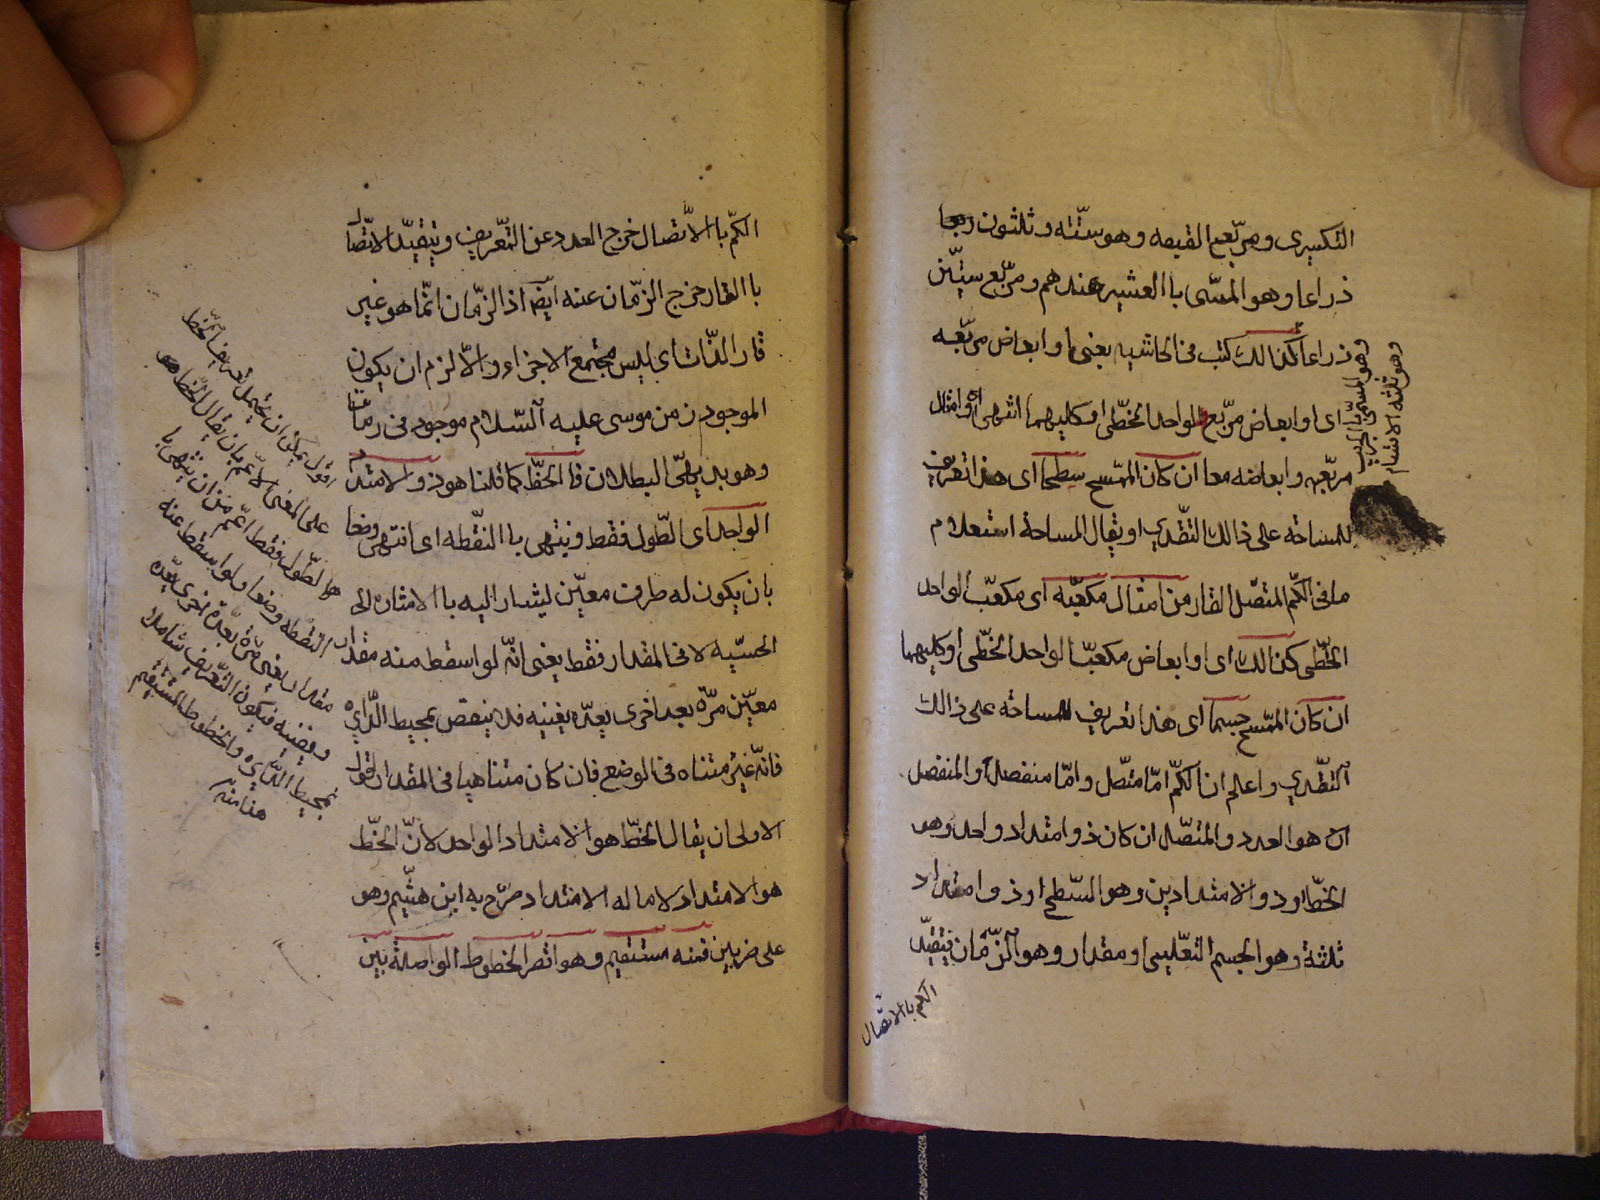 التكسيرى ومربّع القبضه وهو ستّة وثلثون ربعا
ذراعا وهو المسّى باالعشير عندهم ومربّع ستّين
ذراعا كذالك كتب فى الحاشيه يعنى او ابعاض مربّعه
اى او ابعاض مربّع الواحد الخطّى او كليهما انتهى اى او امثال
مربّعه وابعاضه معا ان كان الممسّح سطحا اى هذا تعريف
للمساحة على ذالك التقدير او يقال المساحة استعلام
ما فى الكمّ المتصّل القار من امثال مكعّبه اى مكعّب الواحد
الخطّى كذالك اى او ابعاض مكعبّ الواحد الخطّى او كليهما
ان كان الممسّح جسما اى هذا تعريف المساحة على ذالك
التقدير واعلم ان الكمّ امّا متصّل وامّا منفصل والمنفصل
هو العدد والمتصّل ان كان ذو امتداد واحد وهو
الخطّ او ذو الامتدادين وهو السّطح او ذو امتداد
ثلثة وهو الجسم التعليمى او مقدار وهو الزّمان فبتقيّد
الكم باالاتصال
وهو المسمّى باالجريب
وهو ثلثه الاقسام
الكمّ باالاتّصال خرج العدد عن التّعريف وبتقيّد الاتّصال
باالقار خرج الزّمان عنه ايضا اذ الزّمان انّما هو غير
قار الذّات اى ليس مجتمع الاجزاء والّا لزم ان يكون
الموجود زمن موسى عليه السّلام موجود فى زماننا
وهو بديهىّ البطلان فاالخطّ كما قلنا هو ذو الامتداد
الواحد اى الطّول فقط وينتهى باالنّقطه اى انتهى وضعا
بان يكون له طرف معيّن ليشار اليه باالاشاره
الحسّيه لا فى المقدار فقط يعنى انّه لو اسقط منه مقدار
معيّن مرّة بعد اخرى يعدّه يفنيه فلا ينقص بمحيط الدّايره
فانّه غير متناه فى الوضع فان كان متناهيا فى المقدار اقول
الاولى ان يقال الخطّ هو الامتداد الواحد لانّ الخطّ
هو الامتداد لا ما له الامتداد صرّح به ابن هثيم وهو
على ضربين فمنه مستقيم وهو اقصر الخطوط الواصلة بين
اقول يمكن ان يحتمل تعريف الخط
على المعنى الاعم بان يقال الخط هو
هو الطّول فقط اعّم من ان ينتهى با
النقطه وضعا ولو اسقط عنه
مقدار يعنى مرّة بعد مرة اخرى يعّده
ويفنيه فيكون التّعريف شاملا
بمحيط الدّايره والخطوط المستقيم
هذا منه